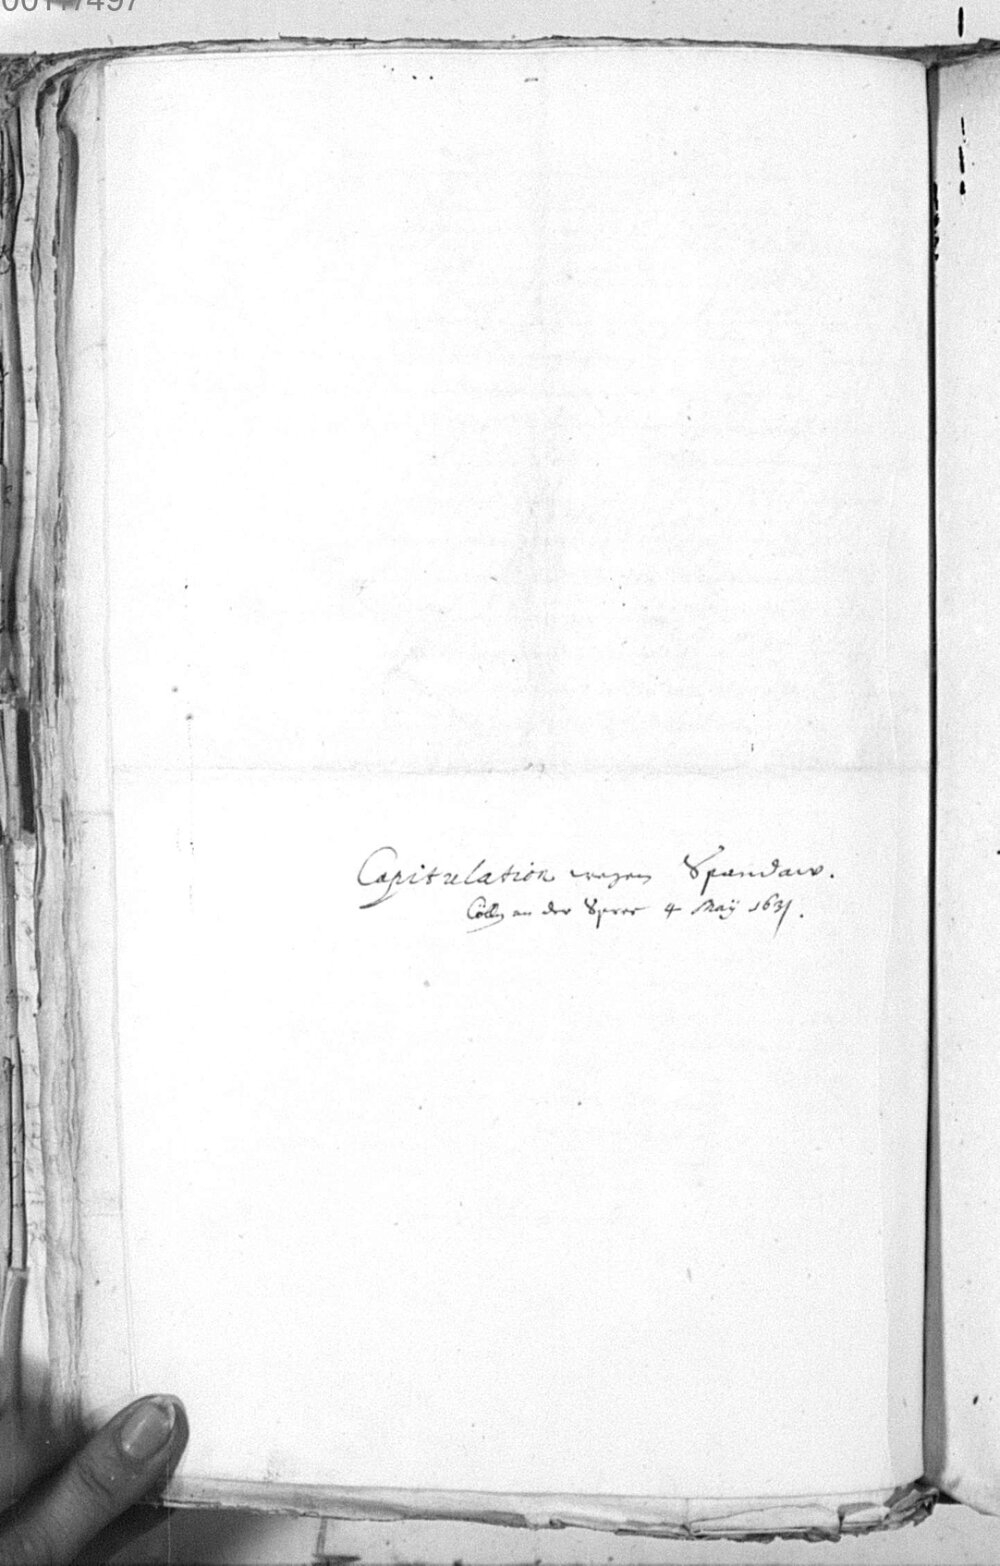 Capitulation wegen Spandaw.
Cölln an der Spree 4 Maÿ 1631.